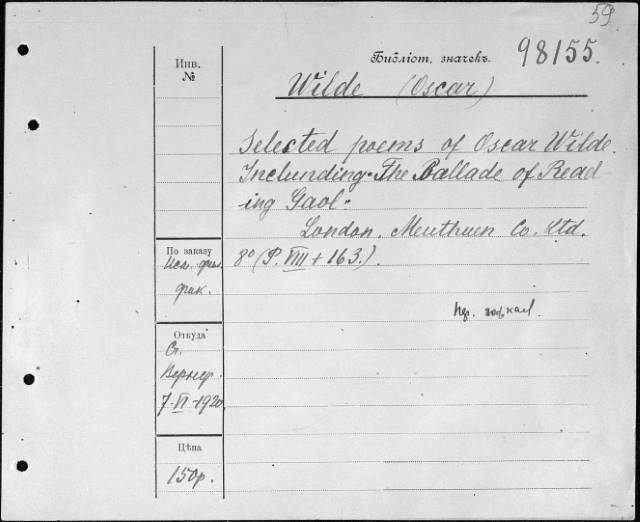 59
Библіот. значекъ.
98155.
Инв.
№
Wilde (Oscar)
Selected poems of Oscar Wilde.
Inclunding "The Ballade of Read-
ing Gaol".
London. Meuthuen Co. Ltd.
8° (P. VIII + 163.).
По заказу
Ист. фил.
фак.
Откуда
Ст.
Вернер.
7-VI-1920
Цѣна
150р.